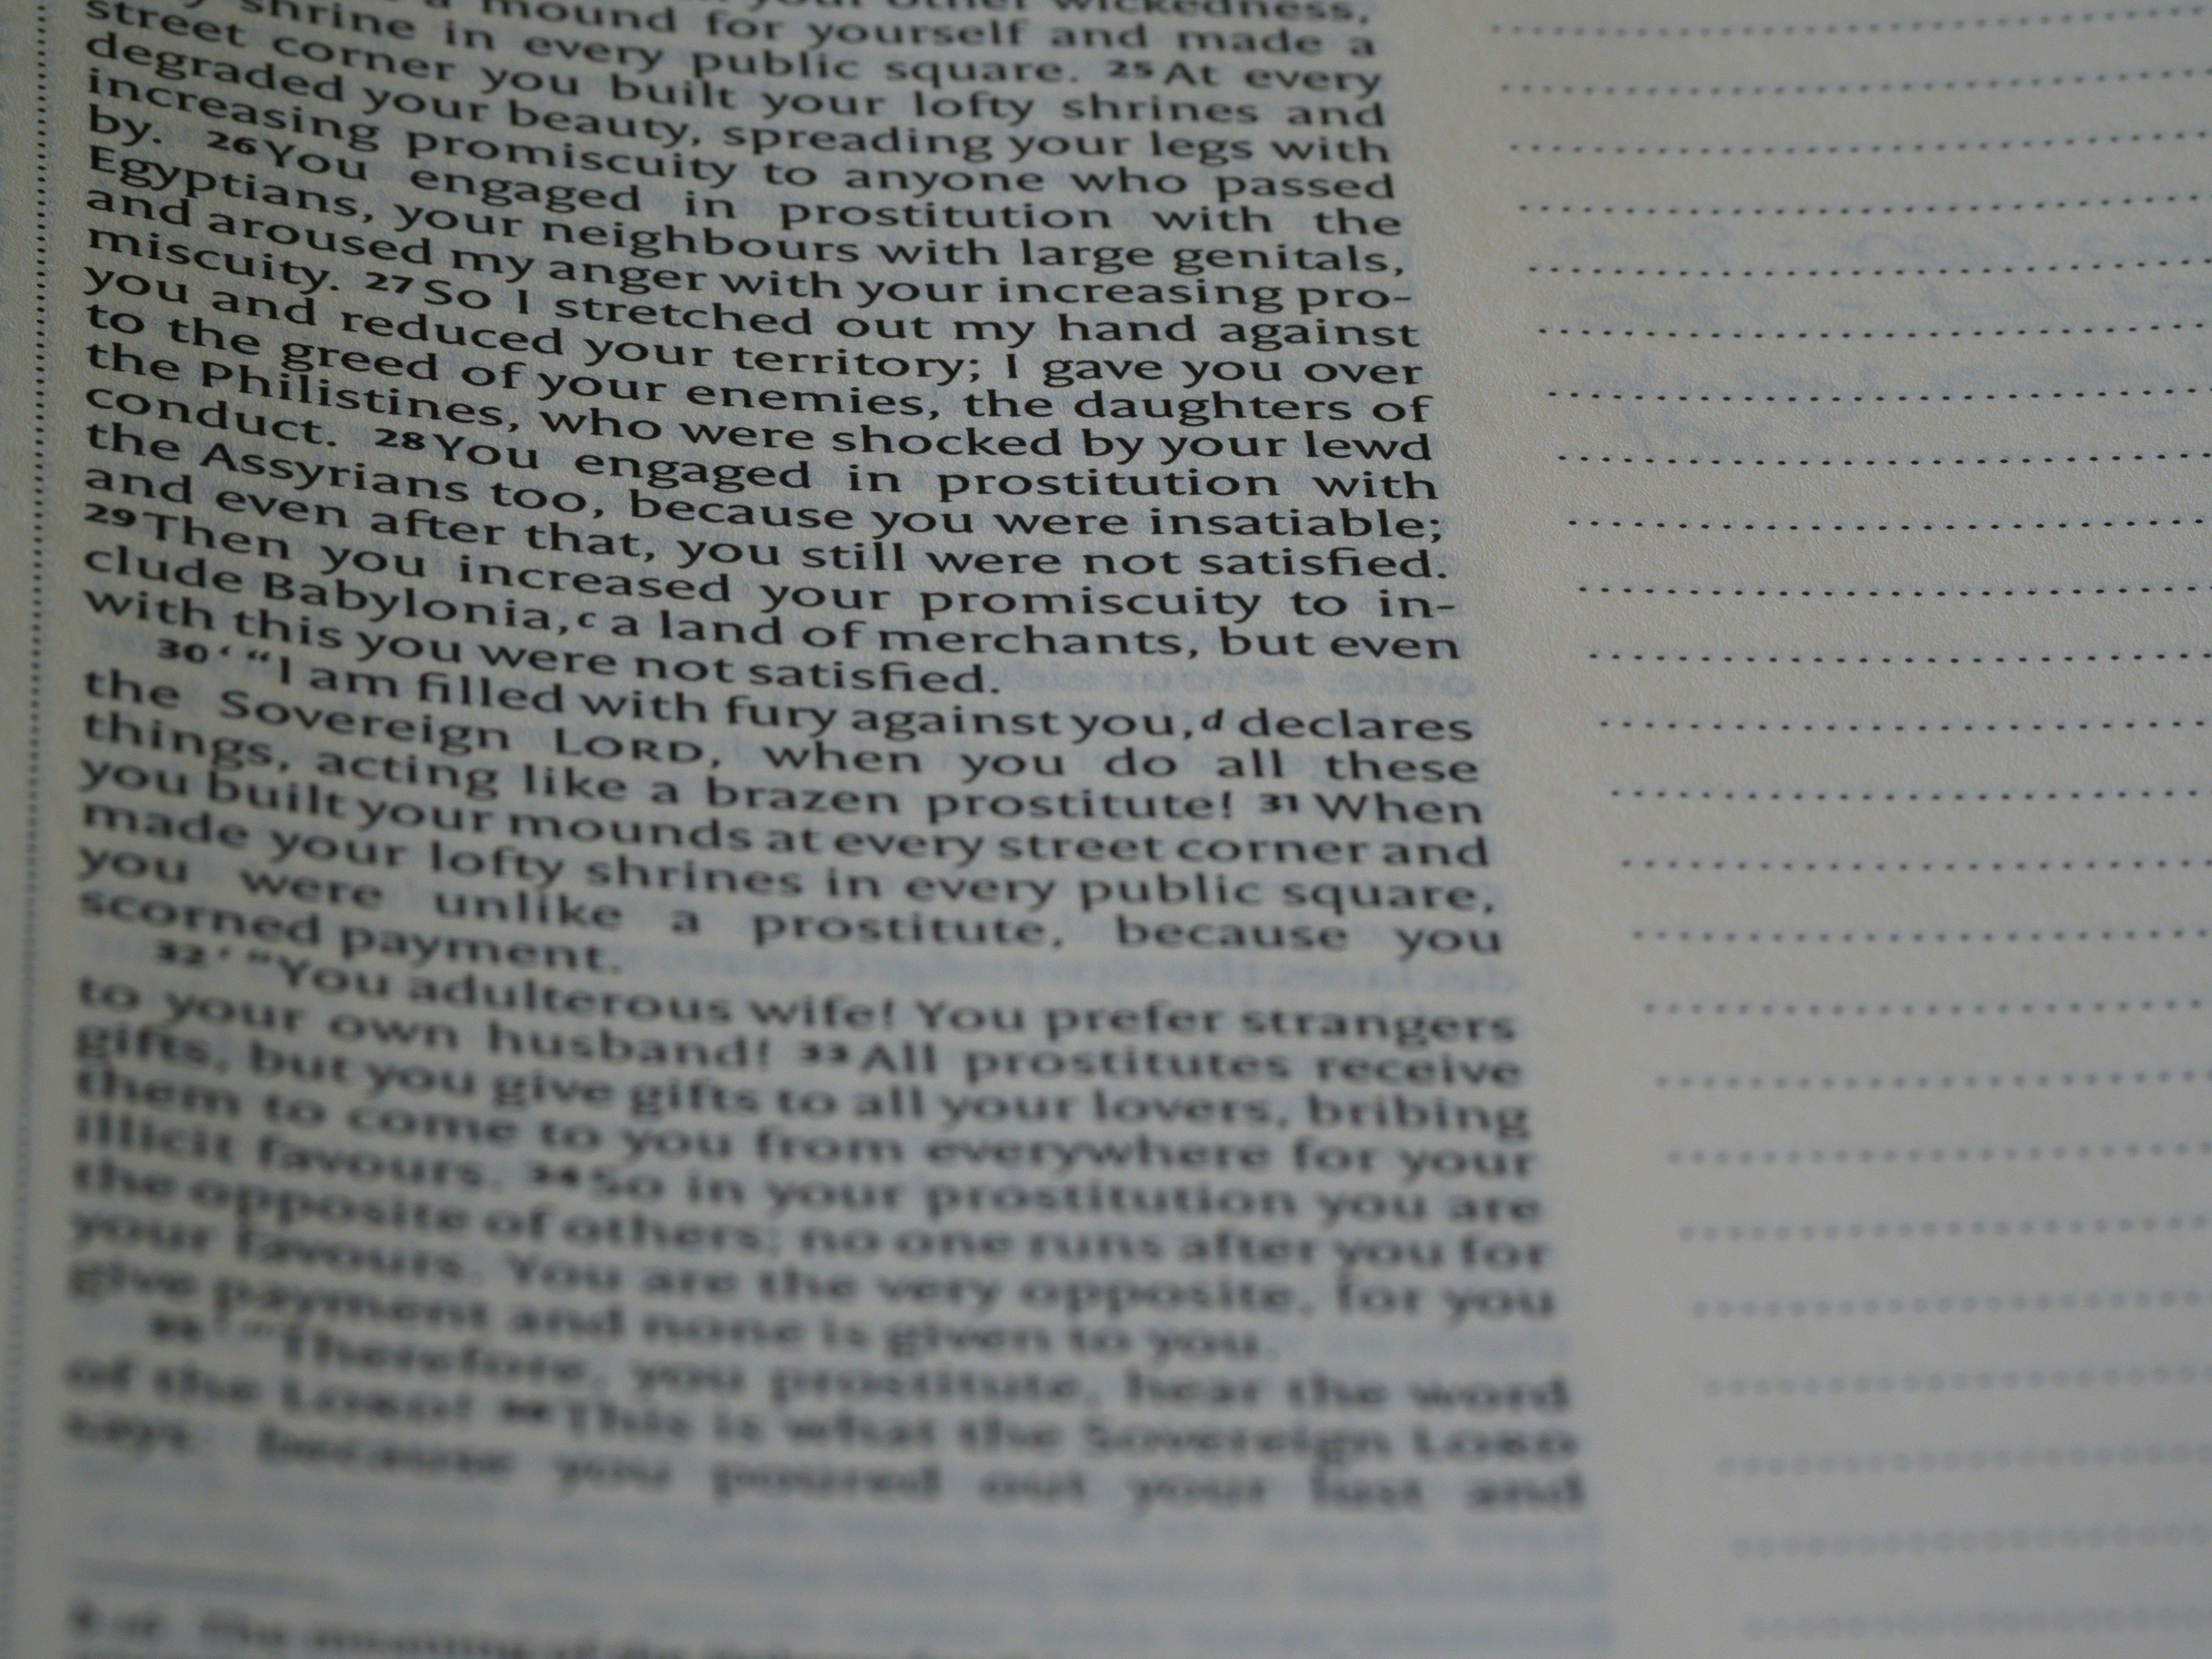 mound for yourself and made a
shrine in every public square. 25 At every
street corner you built your lofty shrines and
degraded your beauty, spreading your legs with
increasing promiscuity to anyone who passed
by. 26 You engaged in prostitution with the
Egyptians, your neighbours with large genitals,
and aroused my anger with your increasing pro-
miscuity. 27 So I stretched out my hand against
you and reduced your territory; I gave you over
to the greed of your enemies, the daughters of
the Philistines, who were shocked by your lewd
conduct. 28 You engaged in prostitution with
the Assyrians too, because you were insatiable;
and even after that, you still were not satisfied.
29 Then you increased your promiscuity to in-
clude Babylonia,c a land of merchants, but even
with this you were not satisfied.
30 ‘ “I am filled with fury against you,d declares
the Sovereign LORD, when you do all these
things, acting like a brazen prostitute! 31 When
you built your mounds at every street corner and
made your lofty shrines in every public square,
you were unlike a prostitute, because you
scorned payment.
32 ‘ “You adulterous wife! You prefer strangers
to your own husband! 33 All prostitutes receive
gifts, but you give gifts to all your lovers, bribing
them to come to you from everywhere for your
illicit favours. 34 So in your prostitution you are
the opposite of others; no one runs after you for
your favours. You are the very opposite, for you
give payment and none is given to you.
35 ‘ “Therefore, you prostitute, hear the word
of the LORD! 36 This is what the Sovereign LORD
says: because you poured out your lust and